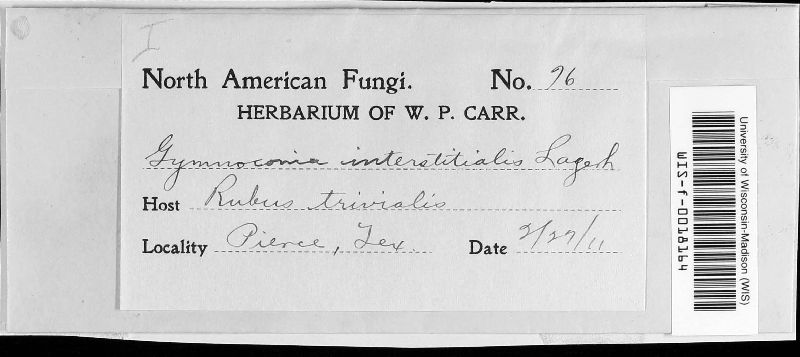 I
North American Fungi. No. 96
HERBARIUM OF W. P. CARR.
Gymnoconia interstitialis Lagerh
Host Rubus trivialis
Locality Pierce, Tex. Date 2/27/11
University of Wisconsin-Madison (WIS)
WIS-f-0018164